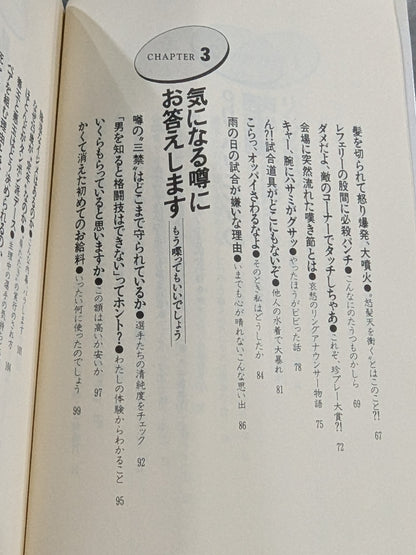 髪を切られて怒り爆発、大噴火●“怒髪天を衝く”とはこのこと?! 67
レフェリーの股間に必殺パンチ●こんなにのたうつものかしら 69
ダメだよ、敵のコーナーでタッチしちゃあ●これぞ、珍プレー大賞?! 72
会場に突然流れた嘆き節とは●哀愁のリングアナウンサー物語 75
キャー、腕にハサミがグサッ●やったほうがビビった話 78
ん?!試合道具がどこにもないぞ●他人の水着で大暴れ 81
こらっ、オッパイさわるなよ●そのとき私はどうしたか 84
雨の日の試合が嫌いな理由●いまでも心が晴れないこんな思い出 86
CHAPTER 3
気になる噂に
お答えします もう喋ってもいいでしょう
噂の“三禁”はどこまで守られているか●選手たちの清純度をチェック 92
「男を知ると格闘技はできない」ってホント?●わたしの体験からわかること 95
いくらもらっていると思いますか●この額は高いか安いか 97
かくて消えた初めてのお給料●いったい何に使ったのでしょう 99